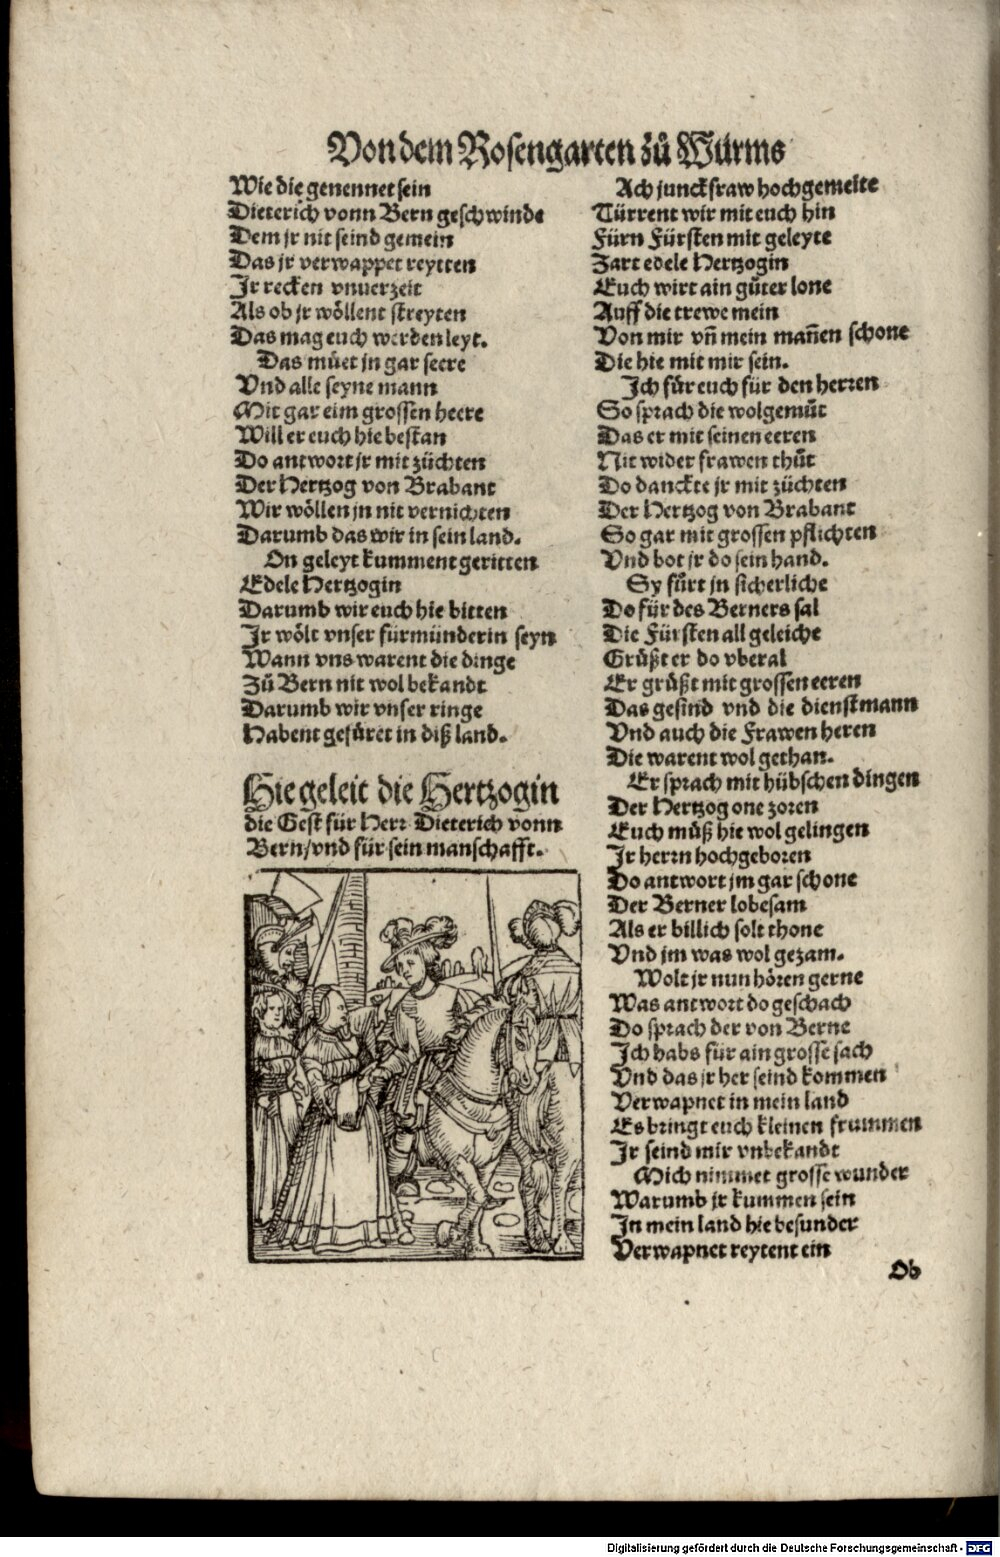 Von dem Rosengarten zů Wurms
Wie die genennet sein
Dieterich vonn Bern geschwinde
Dem jr nit seind gemein
Das jr verwappet reytten
Jr recken vnuerzeit
Als ob jr wöllent streyten
Das mag euch werden leyt.
Das müet jn gar seere
Vnd alle seyne mann
Mit gar eim grossen heere
Will er euch hie bestan
Do antwort jr mit züchten
Der Hertzog von Brabant
Wir wöllen jn nit vernichten
Darumb das wir in sein land.
On geleyt kumment geritten
Edele Hertzogin
Darumb wir euch hie bitten
Jr wölt vnser fürmünderin seyn
Wann vns warent die dinge
Zů Bern nit wol bekandt
Darumb wir vnser ringe
Habent gefüret in diß land.
Hie geleit die Hertzogin
die Gest für Herr Dieterich vonn
Bern/vnd für sein manschafft.
Ach junckfraw hochgemeite
Türrent wir mit euch hin
Fürn Fürsten mit geleyte
Zart edele Hertzogin
Euch wirt ain gůter lone
Auff die trewe mein
Von mir vñ mein mañen schone
Die hie mit mir sein.
Ich für euch für den herren
So sprach die wolgemůt
Das er mit seinen eeren
Nit wider frawen thůt
Do danckte jr mit züchten
Der Hertzog von Brabant
So gar mit grossen pflichten
Vnd bot jr do sein hand.
Sy fürt jn sicherliche
Do für des Berners sal
Die Fürsten all geleiche
Grüßt er do vberal
Er grüßt mit grossen eeren
Das gesind vnd die dienstmann
Vnd auch die Frawen heren
Die warent wol gethan.
Er sprach mit hübschen dingen
Der Hertzog one zoren
Euch můß hie wol gelingen
Jr herrn hochgeboren
Do antwort jm gar schone
Der Berner lobesam
Als er billich solt thone
Vnd jm was wol gezam.
Wolt jr nun hören gerne
Was antwort do geschach
Do sprach der von Berne
Jch habs für ain grosse sach
Vnd das jr her seind kommen
Verwapnet in mein land
Es bringt euch kleinen frummen
Jr seind mir vnbekandt
Mich nimmet grosse wunder
Warumb jr kummen sein
In mein land hie besunder
Verwapnet reytent ein
Ob
Digitalisierung gefördert durch die Deutsche Forschungsgemeinschaft - DFG